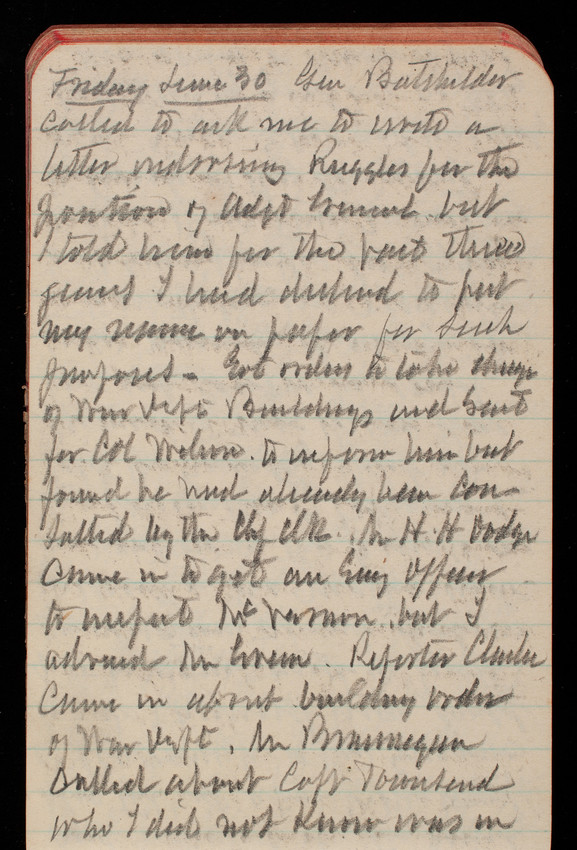 Friday June 30 Gen Batchelder
called to ask me to write a
letter indorsing Ruggles for the
position of Adgt General but
I told him for the past three
years I had declined to put
my name on paper for such
purposes - Got orders to take charge
of War Dept Buildings and sent
for Col Wilson to inform him but
found he had already been con
sulted by the Chf Clk. Mr H H Dodge
came in to get an Eng Officer
to inspect Mt Vernon, but I
advised Mr Green. Reporter Clarke
came in about building order
of War Dept. Mr Brannegan
called about Capt Townsend
who I did not know was in